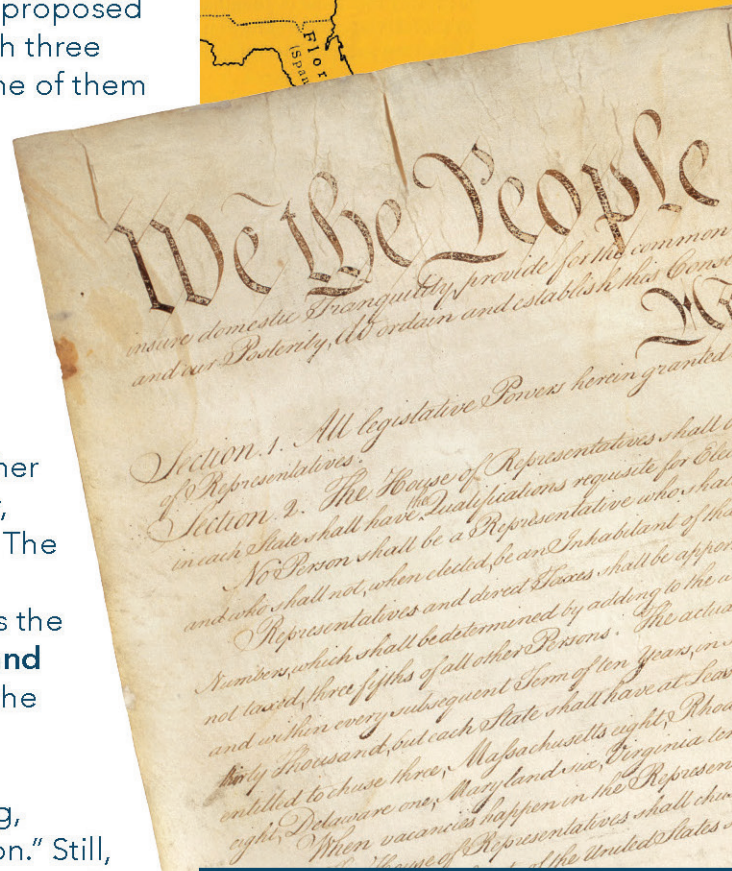 proposed
h three
ne of them
Flor
(Span
We the People
insure domestic Tranquility, provide for the common
and our Posterity, do ordain and establish this Const
Section. 1. All legislative Powers herein granted
of Representatives.
Section. 2. The House of Representatives shall b
in each State shall have the Qualifications requisite for Elec
No Person shall be a Representative who shal
and who shall not, when elected, be an Inhabitant of tha
Representatives and direct Taxes shall be appor
Numbers, which shall be determined by adding to the w
not taxed, three fifths of all other Persons. The actua
and within every subsequent Term of ten Years, in s
thirty Thousand, but each State shall have at Leas
entitled to chuse three, Massachusetts eight, Rhod
eight, Delaware one, Maryland six, Virginia ten
When vacancies happen in the Represen
House of Representatives shall chus
of the United States s
her
,
The
s the
and
he
g,
on." Still,